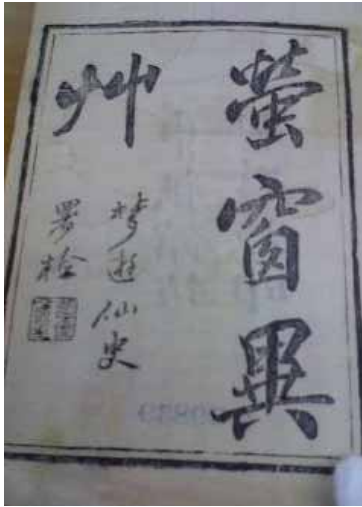 螢窗異
艸
梦遊仙史
署检